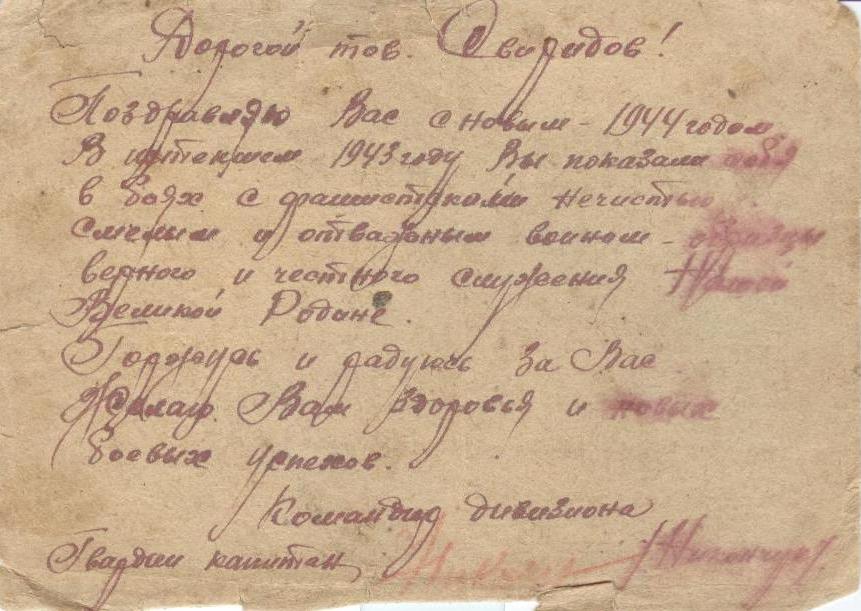 Дорогой тов. Свиридов!
Поздравляю Вас с новым - 1944 годом
В истекшем 1943 году Вы показали себя
в боях с фашистскими нечистью
смелым и отважным воином - образцы
верного и честного служения Нашей
Великой Родине.
Горжусь и радуюсь за Вас
Желаю Вам здоровья и новых
боевых успехов.
Командир дивизиона
Гвардии капитан